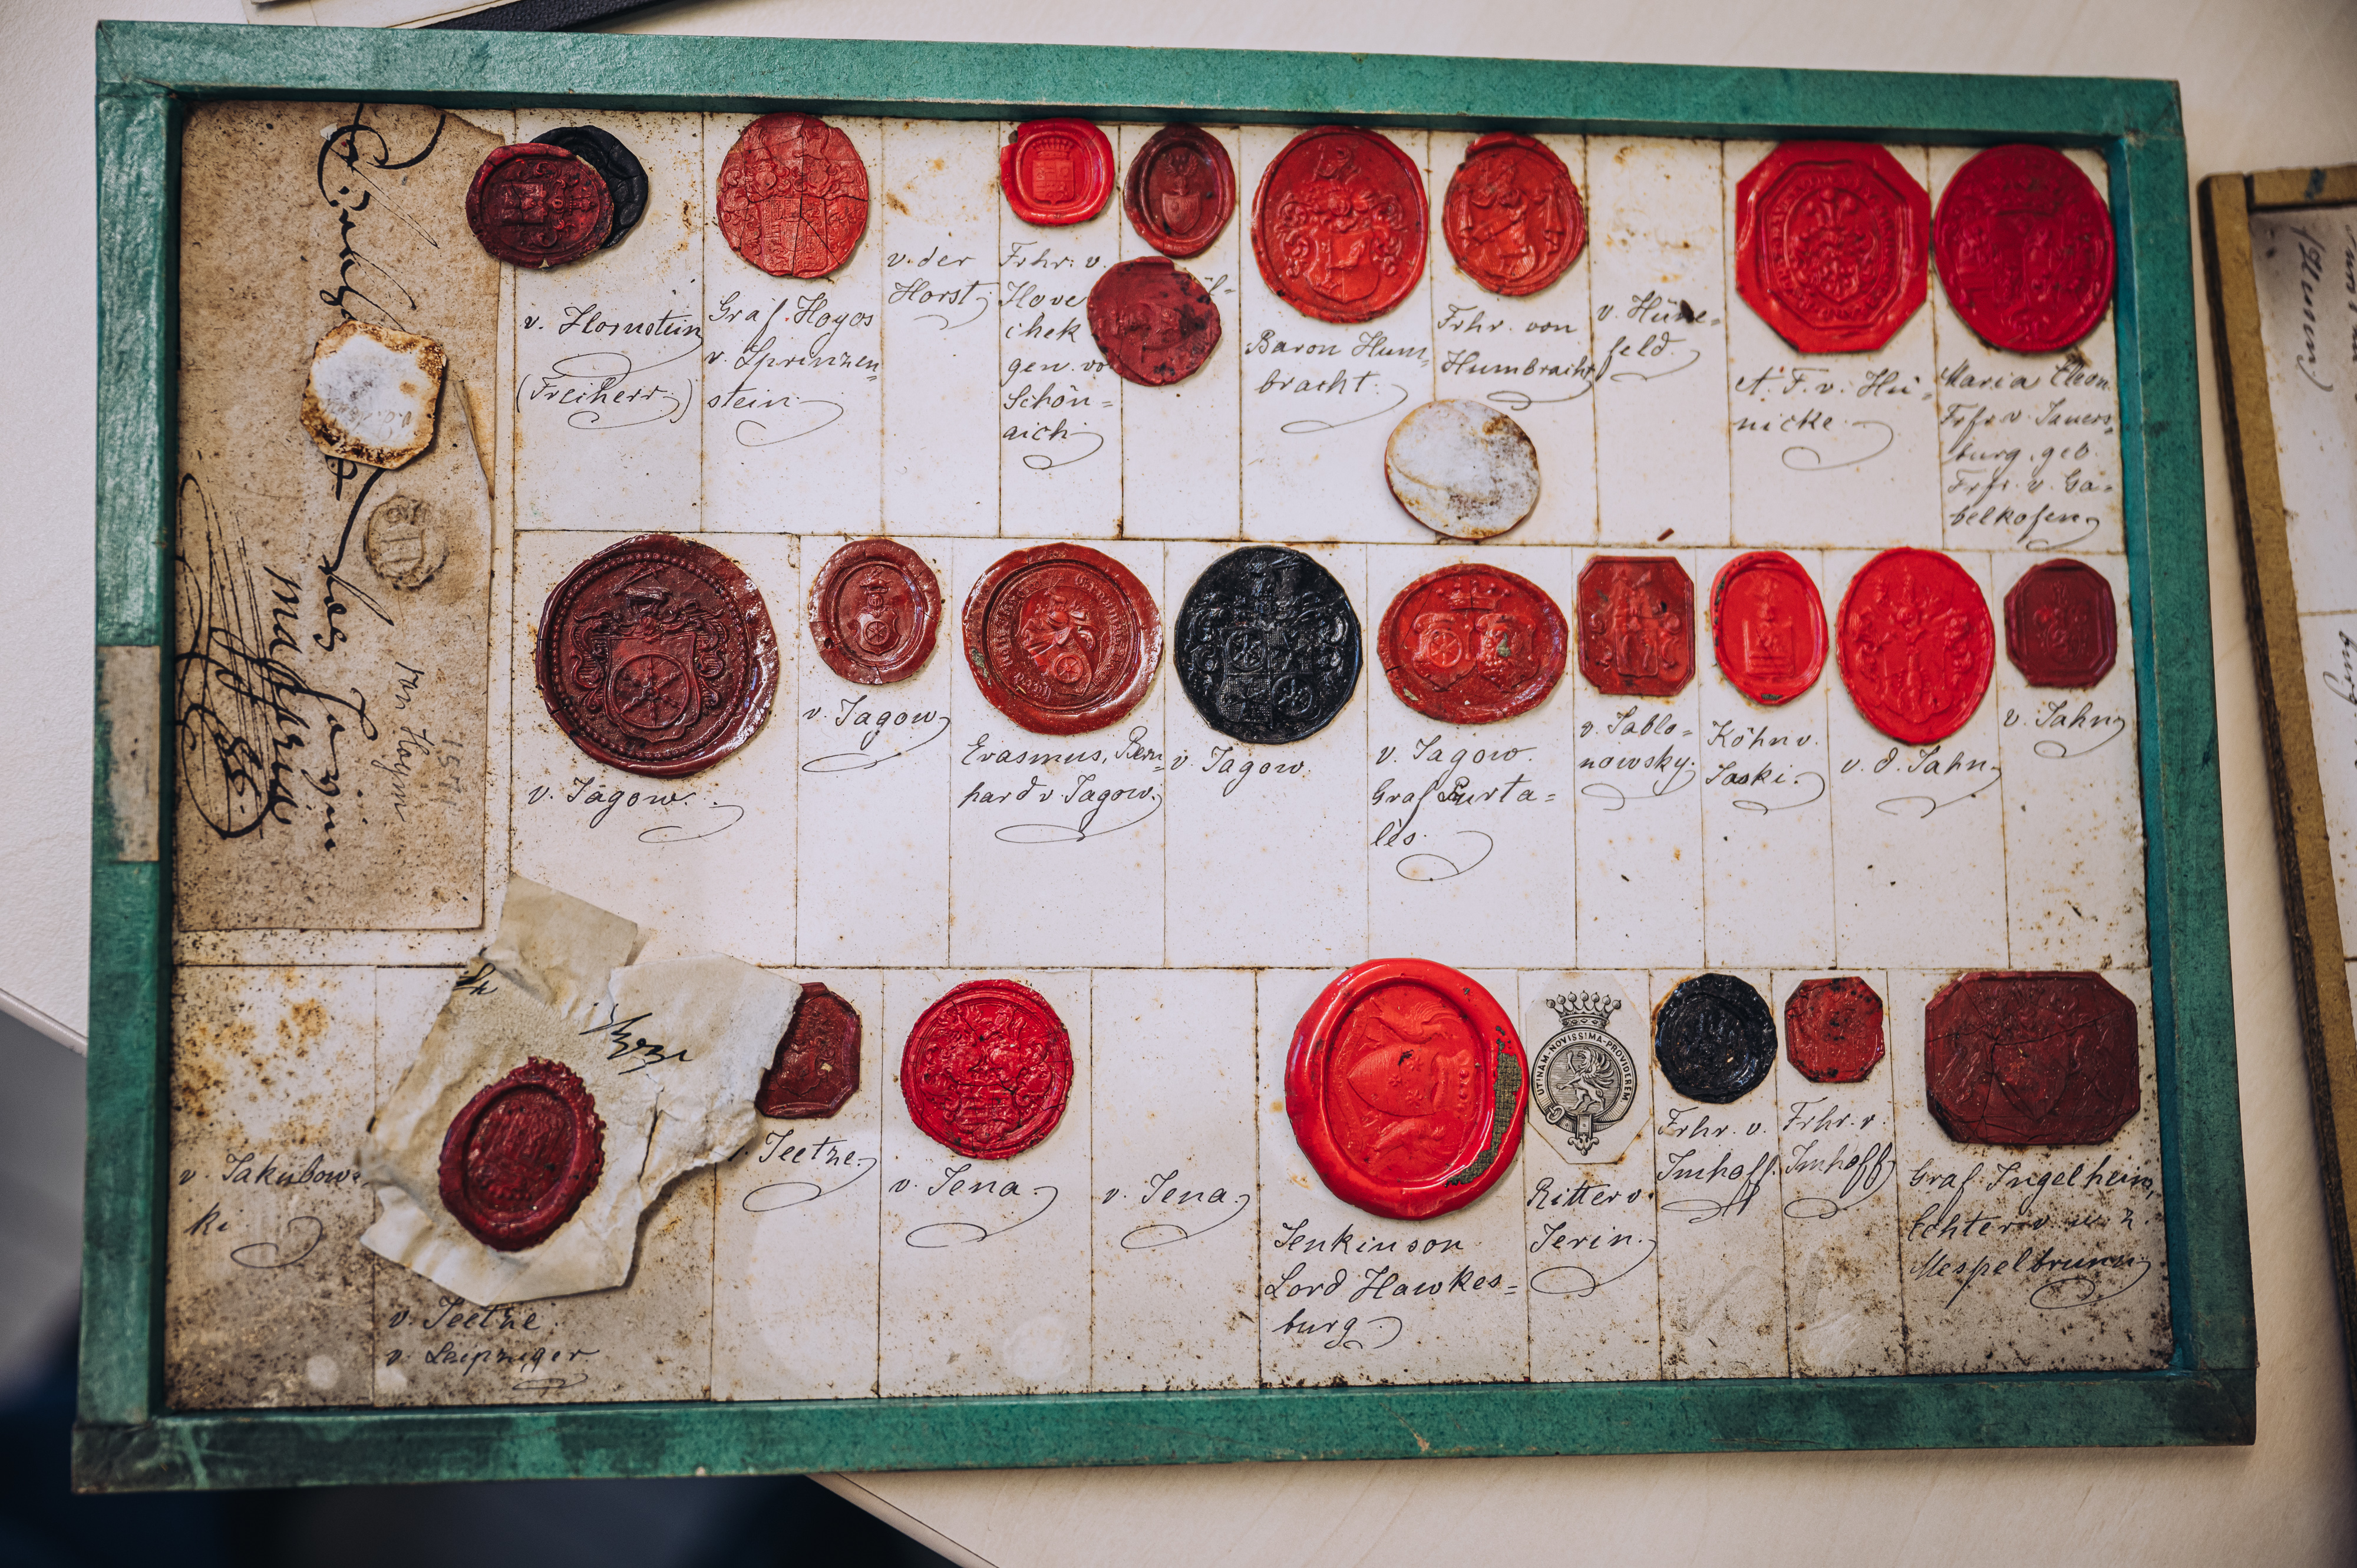 v. Hornstein
(Freiherr.)
Graf. Hoyos
v. Sprinzen=
stein.
v. der
Horst.
Frhr. v.
Hove
chek
gen. vo
Schön=
aich.
Baron Hum=
bracht.
Frhr. von
Humbracht
v. Hüne=
feld.
A. F. v. Hü=
nicke.
Maria Eleon.
Frfr. v. Jauers=
burg, geb.
Frfr. v. Ga=
belkofen.
v. Jagow.
v. Jagow
Erasmus, Bern=
hard v. Jagow.
v. Jagow.
v. Jagow.
Graf Purta=
lès.
v. Jablo=
nowsky.
Köhn v.
Jaski.
v. d. Jahn.
v. Jahn
von Haym
v. Jakubows
ki
v. Jeetze.
v. Leipziger
Jeetze.
v. Jena.
v. Jena.
Jenkinson
Lord Hawkes=
burg.
UTINAM·NOVISSIMA·PROVIDEREM
Ritter v.
Jerin.
Frhr. v.
Imhoff.
Frhr. v.
Imhoff
Graf Ingelheim,
Echter v. u. z.
Mespelbrunn
(Hunn.)
burg